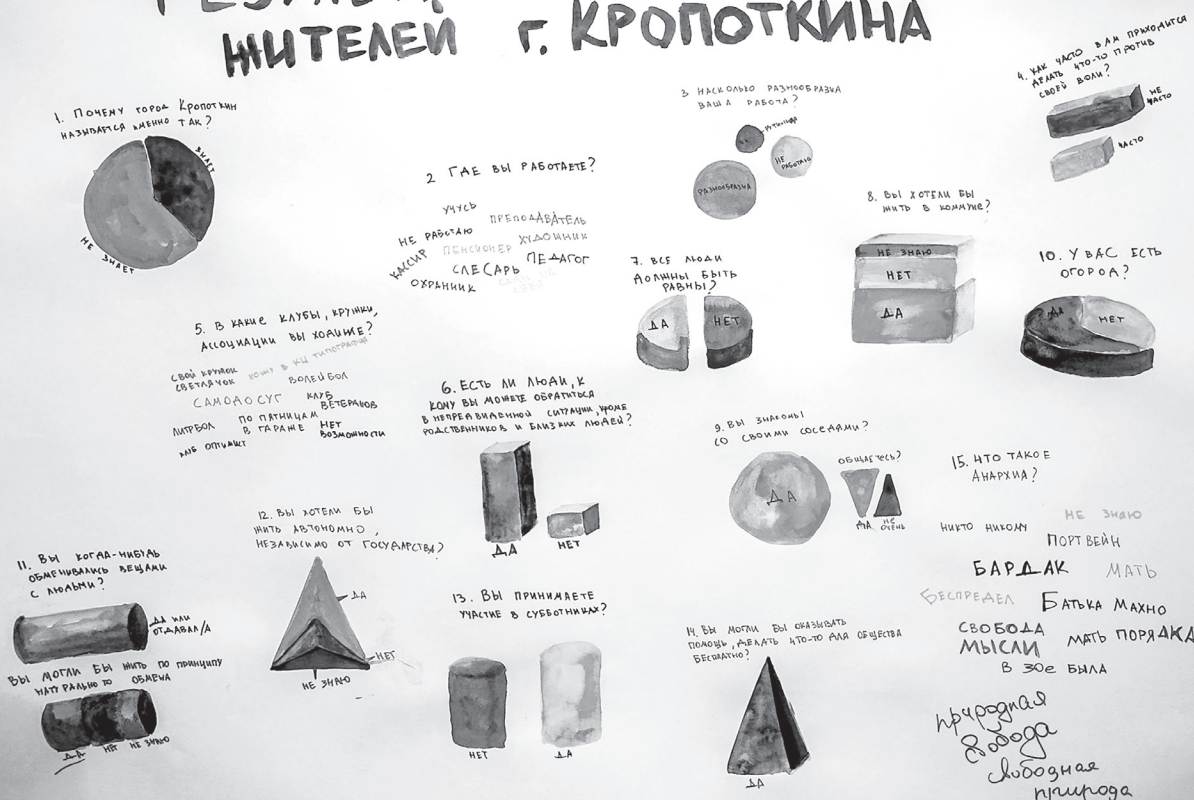 ЖИТЕЛЕЙ г. КРОПОТКИНА
1. ПОЧЕМУ ГОРОД КРОПОТКИН
НАЗЫВАЕТСЯ ИМЕННО ТАК?
ЗНАЕТ
НЕ ЗНАЕТ
2 ГДЕ ВЫ РАБОТАЕТЕ?
УЧУСЬ
ПРЕПОДАВАТЕЛЬ
НЕ РАБОТАЮ
ПЕНСИОНЕР
ХУДОЖНИК
КАССИР
СЛЕСАРЬ
ПЕДАГОГ
ОХРАННИК
3. НАСКОЛЬКО РАЗНООБРАЗНА
ВАША РАБОТА?
НЕ
РАБОТАЮ
РАЗНООБРАЗНА
4. КАК ЧАСТО ВАМ ПРИХОДИТСЯ
ДЕЛАТЬ ЧТО-ТО ПРОТИВ
СВОЕЙ ВОЛИ?
НЕ
ЧАСТО
ЧАСТО
5. В КАКИЕ КЛУБЫ, КРУЖКИ,
АССОЦИАЦИИ ВЫ ХОДИТЕ?
СВОЙ КРУЖОК
СВЕТЛЯЧОК
ХОЖУ В КЦ ТИПОГРАФИЯ
ВОЛЕЙБОЛ
САМОДОСУГ
КЛУБ
ВЕТЕРАНОВ
ЛИТРБОЛ
ПО ПЯТНИЦАМ
В ГАРАЖЕ
НЕТ
ВОЗМОЖНОСТИ
КЛУБ ОПТИМИСТ
6. ЕСТЬ ЛИ ЛЮДИ, К
КОМУ ВЫ МОЖЕТЕ ОБРАТИТЬСЯ
В НЕПРЕДВИДЕННОЙ СИТУАЦИИ, КРОМЕ
РОДСТВЕННИКОВ И БЛИЗКИХ ЛЮДЕЙ?
ДА
НЕТ
7. ВСЕ ЛЮДИ
ДОЛЖНЫ БЫТЬ
РАВНЫ?
ДА
НЕТ
8. ВЫ ХОТЕЛИ БЫ
ЖИТЬ В КОММУНЕ?
НЕ ЗНАЮ
НЕТ
ДА
9. ВЫ ЗНАКОМЫ
СО СВОИМИ СОСЕДЯМИ?
ДА
ОБЩАЕТЕСЬ?
ДА
НЕ
ОЧЕНЬ
10. У ВАС ЕСТЬ
ОГОРОД?
ДА
НЕТ
11. ВЫ КОГДА-НИБУДЬ
ОБМЕНИВАЛИСЬ ВЕЩАМИ
С ЛЮДЬМИ?
ДА ИЛИ
ОТДАВАЛ/А
ВЫ МОГЛИ БЫ ЖИТЬ ПО ПРИНЦИПУ
НАТУРАЛЬНОГО ОБМЕНА
ДА
НЕТ
НЕ ЗНАЮ
12. ВЫ ХОТЕЛИ БЫ
ЖИТЬ АВТОНОМНО,
НЕЗАВИСИМО ОТ ГОСУДАРСТВА?
ДА
НЕТ
НЕ ЗНАЮ
13. ВЫ ПРИНИМАЕТЕ
УЧАСТИЕ В СУББОТНИКАХ?
НЕТ
ДА
14. ВЫ МОГЛИ БЫ ОКАЗЫВАТЬ
ПОМОЩЬ, ДЕЛАТЬ ЧТО-ТО ДЛЯ ОБЩЕСТВА
БЕСПЛАТНО?
ДА
15. ЧТО ТАКОЕ
АНАРХИЯ?
НЕ ЗНАЮ
НИКТО НИКОМУ
ПОРТВЕЙН
БАРДАК
МАТЬ
БЕСПРЕДЕЛ
БАТЬКА МАХНО
СВОБОДА
МЫСЛИ
МАТЬ ПОРЯДКА
В 30е БЫЛА
природная
свобода
свободная
природа